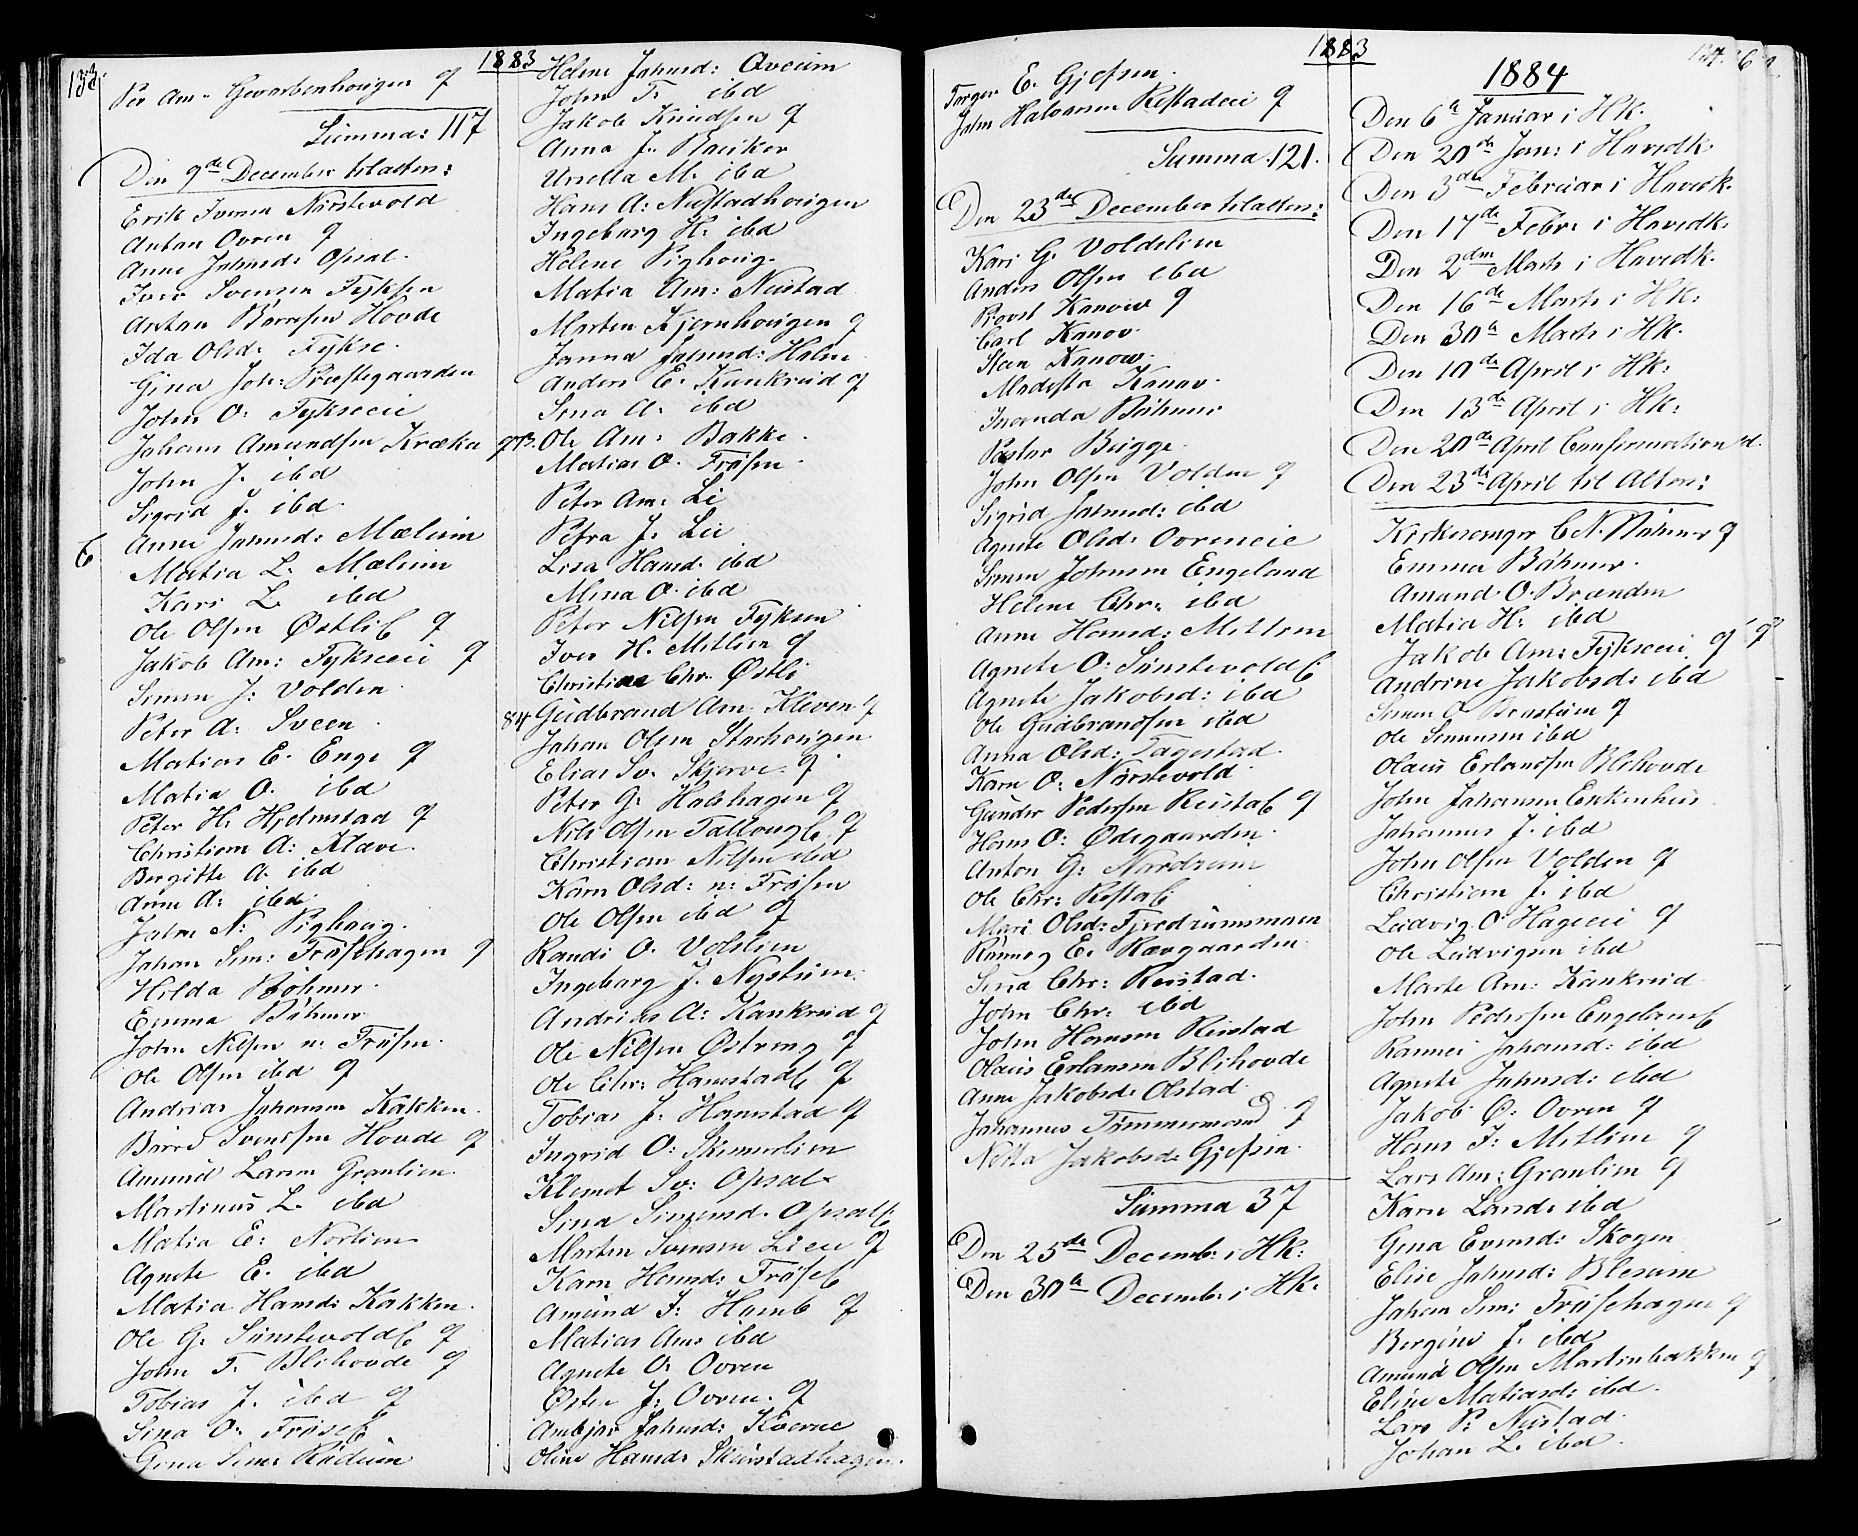 133.
1883
Per Am:
Summa: 117
Den 9de December til alters:
Erik Iversen Nörstevold
Anton Ovren q
Anne Johnsd: Opsal.
Iver Svensen Fyksen
Anton Börresen Hovde
Ida Olsd: Fykse.
Gina Joh: Præstegaarden
John O: Fykseeie
Johans Amundsen Kræka
John J. ibd
Sigrid J. ibd.
Anne Johnsd: Mælum
Matia L. Mælum
Kari L. ibd
Ole Olsen Östli q
Jakob Am: Fykseeie q
Simen J: Volden
Peter A: Sveen.
Matias E. Enge q
Matia O. ibd
Peter H: Hjelmstad q
Christian A: Klæve.
Birgitte A. ibd
Anne A: ibd
John N: Pighoug.
Johan Sim: Fröisehagen q
Hilda Böhmer.
Emma Böhmer
John Nilsen n: Fröisen.
Ole Olsen ibd q
Andrias Johansen Kakken.
Börre Svendsen Hovde q
Amund Larsen Granlien.
Martinus L. ibd
Matia E: Norlien
Agnete E. ibd
Matia Hansd: Kakken.
Ole G. Sünstevold q
John T. Blihovde q
Tobias J. ibd q
Sina O. Fröise
Gina Sims: Rudum
Helene Johnsd: Aveum
John T. ibd
Jakob Knudsen q
Anna J. Bauker
Ursella M. ibd
Hans A: Nustadhougen
Ingeborg H. ibd
Helene Pighoug.
Matia Am: Neustad
Morten Kjernhougen q
Janna Johnsd: Holm
Anders E. Kankrud q
Sina A. ibd
Ole Am: Bakke.
Matias O. Fröisen.
Peter Am: Li
Petra J. Lie
Lisa Hansd. ibd
Mina O. ibd
Peter Nilsen Fyksen
Iver H. Mitlien q
Christiane Chr. Östli
84 Gudbrand Am. Kleven q
Johan Olsen Storhougen
Elias Sv. Skjerve. q
Peter G: Holehagen q
Nils Olsen q
Christian Nilsen ibd
Karn Olsd: n: Fröisen
Ole Olsen ibd q
Randi O. Volslien
Ingeborg J. Nystuen.
Andrias A: Kankrud q
Ole Nilsen Östreng q
Ole Chr: Hamstad q
Tobias J. Hamstad q
Ingrid O: Skimerlien
Klemet Sv: Opsal
Sina Simensd. Opsal
Morten Svensen Lieeie q
Karn Hansd: Fröise
Amund J: Hamb q
Matias Ams ibd
Agnete O: Ovren
Östen J: Ovren. q
Ambjör Johnsd: Kværne
Oline Hansd: Skurstadhagen.
1883
Torger E. Gjefsen.
John Halvorsen q
Summa. 121.
Den 23de December til alters:
Kari G. Voldslien
Anders Olsen ibd
Provst Kanow q
Carl Kanow.
Steen Kanow.
Modesta Kanow.
Inanda Böhmer
Pastor Bugge.
John Olsen Volden q
Sigrid Johnsd: ibd
Agnete Olsd: Ovreneie
Simen Johnsen Engeland
Helene Chr: ibd
Anne Hansd: Mitlien
Agnete O: Sünstevold
Agnete Jakobsd: ibd
Ole Gudbrandsen ibd
Anna Olsd: Tagestad.
Karn O: Nörstevold.
Gunder Pedersen Reista q
Hans O: Ödegaarden.
Anton G: Nordrum
Ole Chr:
Mari Olsd:
Rönnog E. Rævgaarden.
Sina Chr: Reistad.
John Chr: ibd
John Hansen Reistad
Olaus Erlansen Blihovde
Anne Jakobsd: Olstad
Johannes Timmermand q
Netta Jakobsd: Gjefsen
Summa 37
Den 25de Decemb: i HK:
Den 30te Decemb: i HK:
134.
1884
Den 6te Januar i HK.
Den 20de Jan: i Havedk.
Den 3die Februar i Havedk.
Den 17de Febr: i Havedk.
Den 2den Marts i Havedk.
Den 16de Marts i HK.
Den 30te Marts i HK.
Den 10de April i HK:
Den 13de April i HK:
Den 20de April Confirmation
Den 23de April til Alters:
Kirkesanger C N. Böhmer q
Emma Böhmer.
Amund O. Brænden
Matia H: ibd
Jakob Am: Fykseeie q
Andrine Jakobsd: ibd
Simen O. q
Ole Simensen ibd
Olaus Erlandsen Blihovde
John Johansen Enkenhus.
Johannes J. ibd
John Olsen Volden q
Christian J. ibd
Ludvig O Hageeie q
Ole Ludvigsen ibd
Marte Am: Kankrud
John Pedersen Engeland
Rannei Johansd: ibd
Agnete Johnsd: ibd
Jakob O: Ovren q
Hans J: Mitlien q
Lars Am: Granlien q
Karn Larsd: ibd
Gina Evensd: Skogen
Elise Johnsd: Blesum
Johan Sim: Fröisehagen q
Bergine J. ibd
Amund Olsen Martinbakken q
Eline Matiasd: ibd.
Lars P: Nustad.
Johan L. ibd.